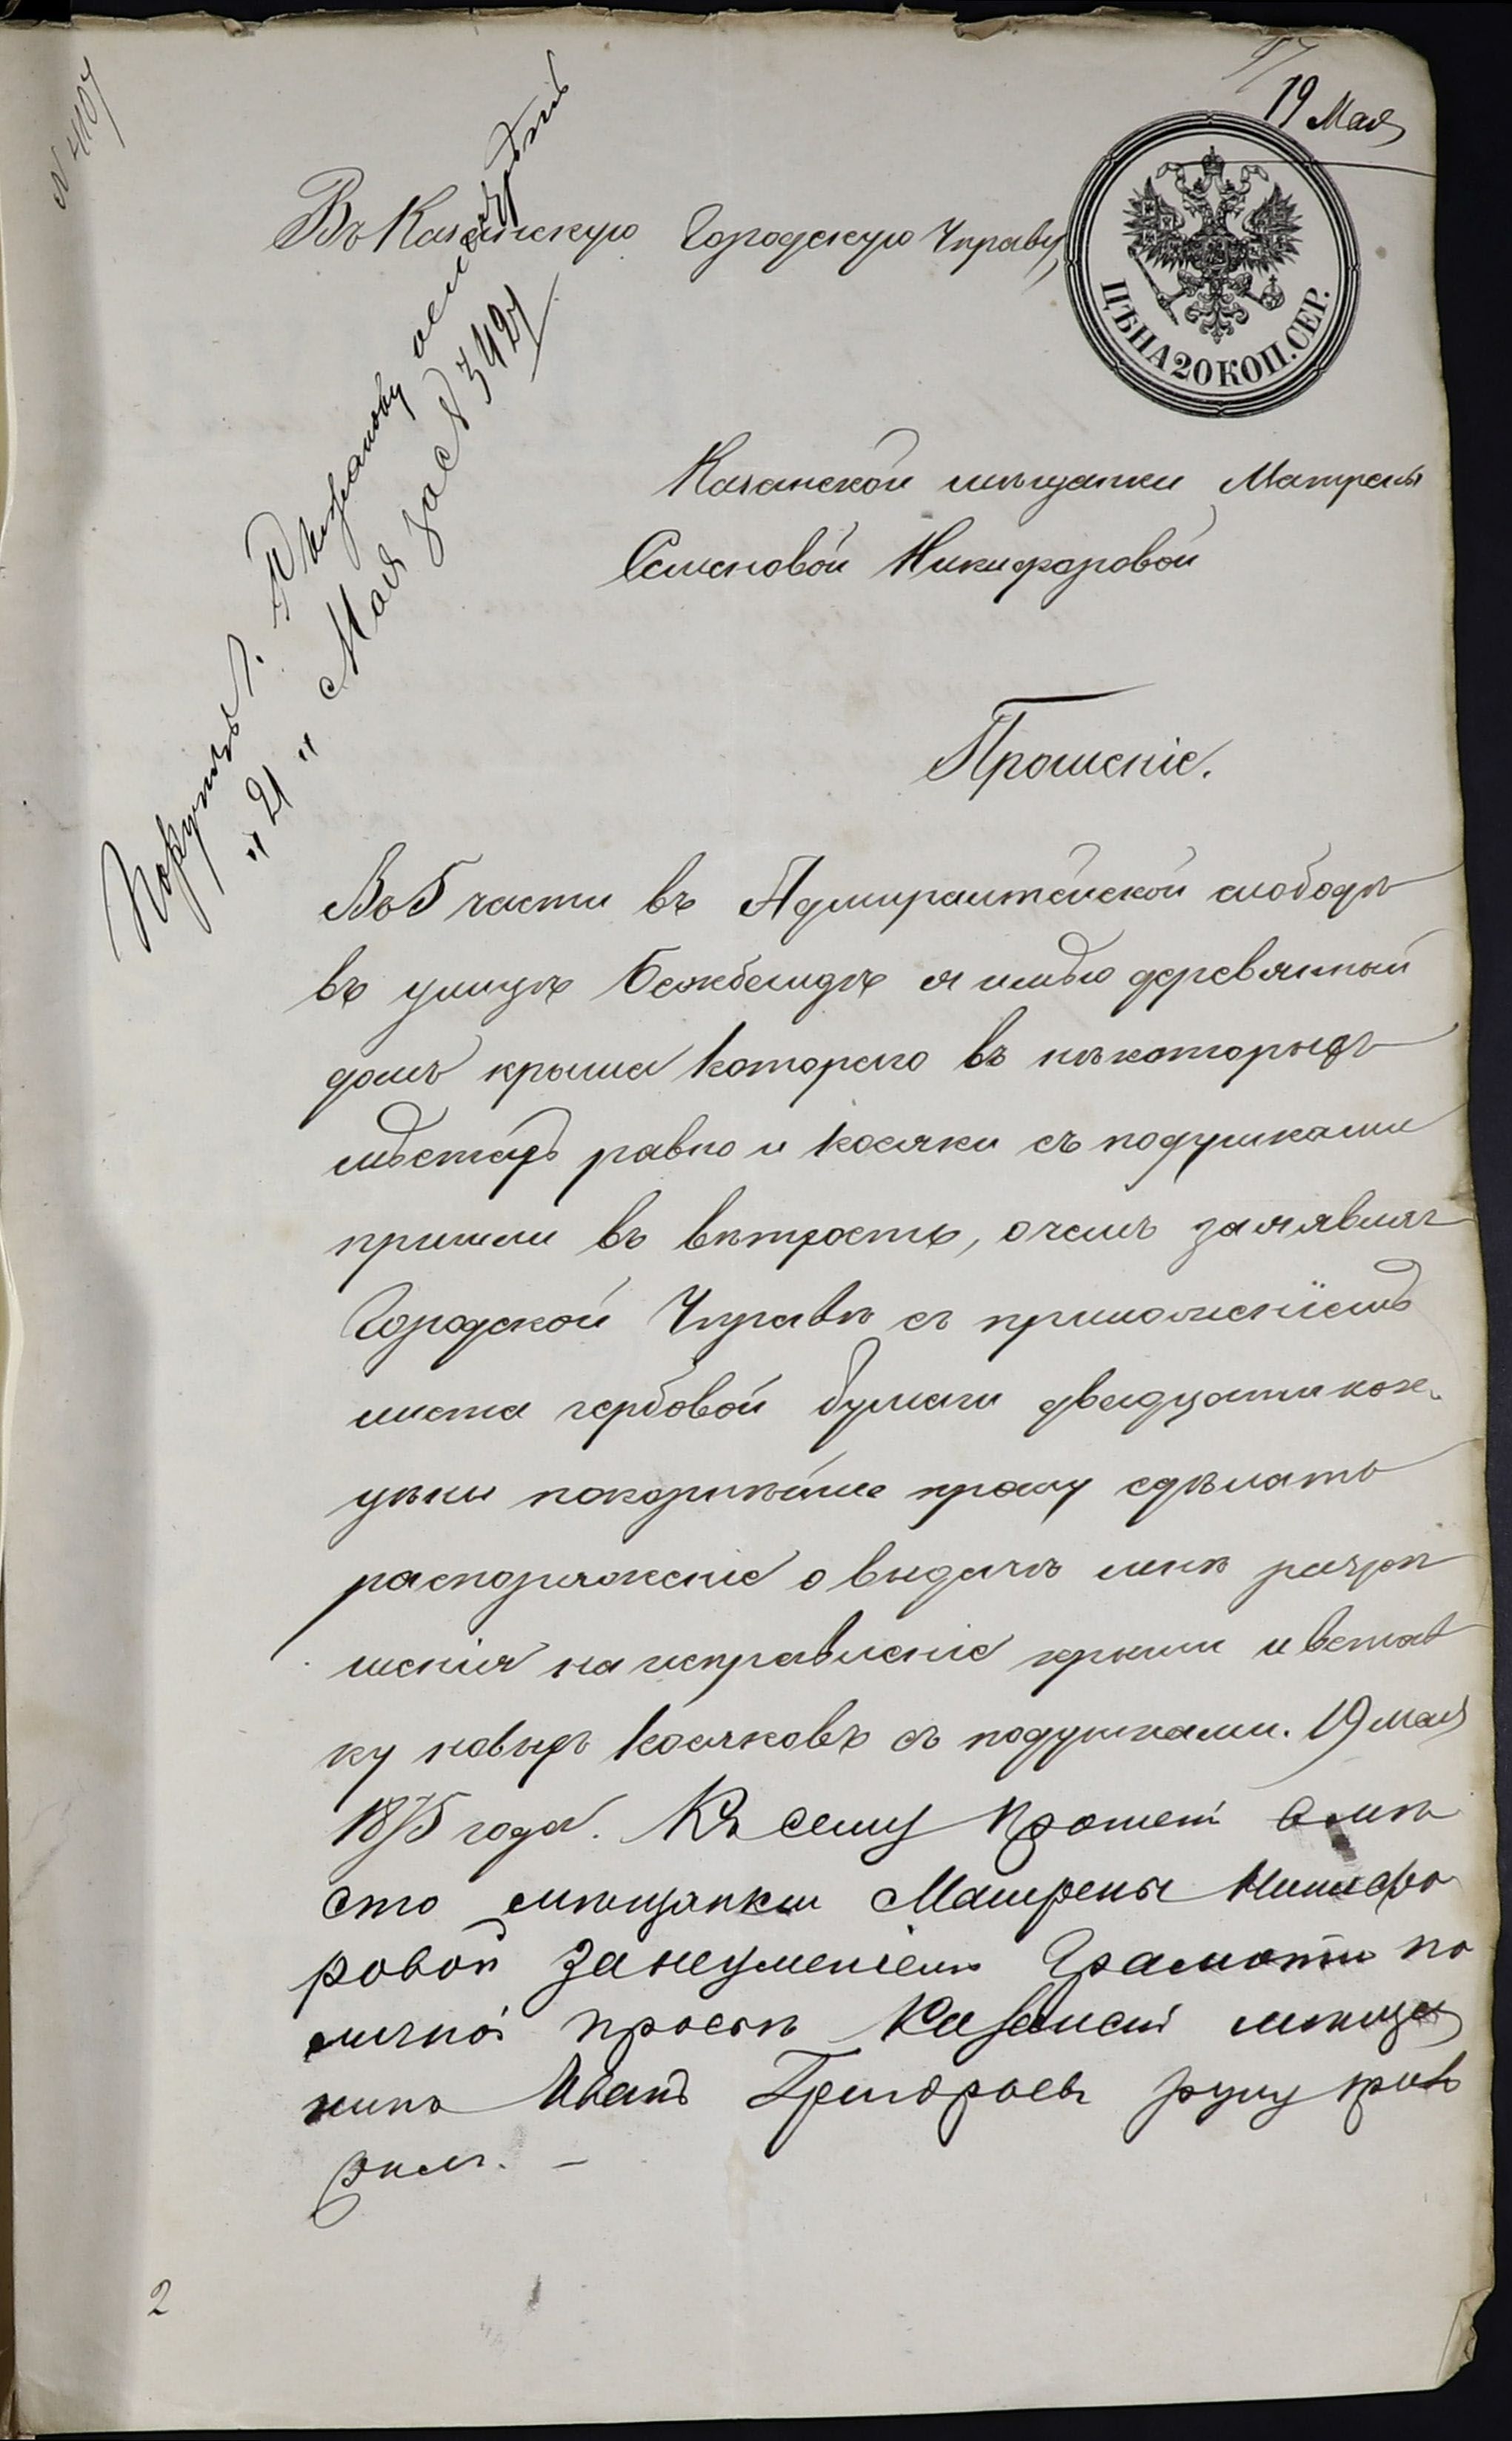 19 Мая
Въ Казанскую Городскую Управу
ЦѢНА 20 КОП. СЕР.
Казанской мѣщанки Матрены
Семеновой Никифоровой
Прошеніе.
Въ 5 части въ Адмиралтейской слободѣ
въ улицѣ Бежбалдѣ я имѣю деревянный
домъ крыша котораго въ нѣкоторыхъ
мѣстахъ равно и косяки съ подушками
пришли въ вѣтхость, о чемъ заявляя
Городской Управѣ съ приложеніемъ
листа гербовой бумаги двадцати коп.
цѣны покорнѣйше прошу сдѣлать
распоряженіе о выдачѣ мнѣ разрѣ
шенія на исправленіе крыши и встав
ку новыхъ косяковъ съ подушками. 19 мая
1875 года. Къ сему прошенi вмѣ
сто мѣщанки Матрены Никифо
ровой за неуменіемъ Грамоты по
личной прозбѣ Казанскй мѣща
нинъ Иванъ Григорьевъ руку при
Поручить г.
"21" Мая 3421
2